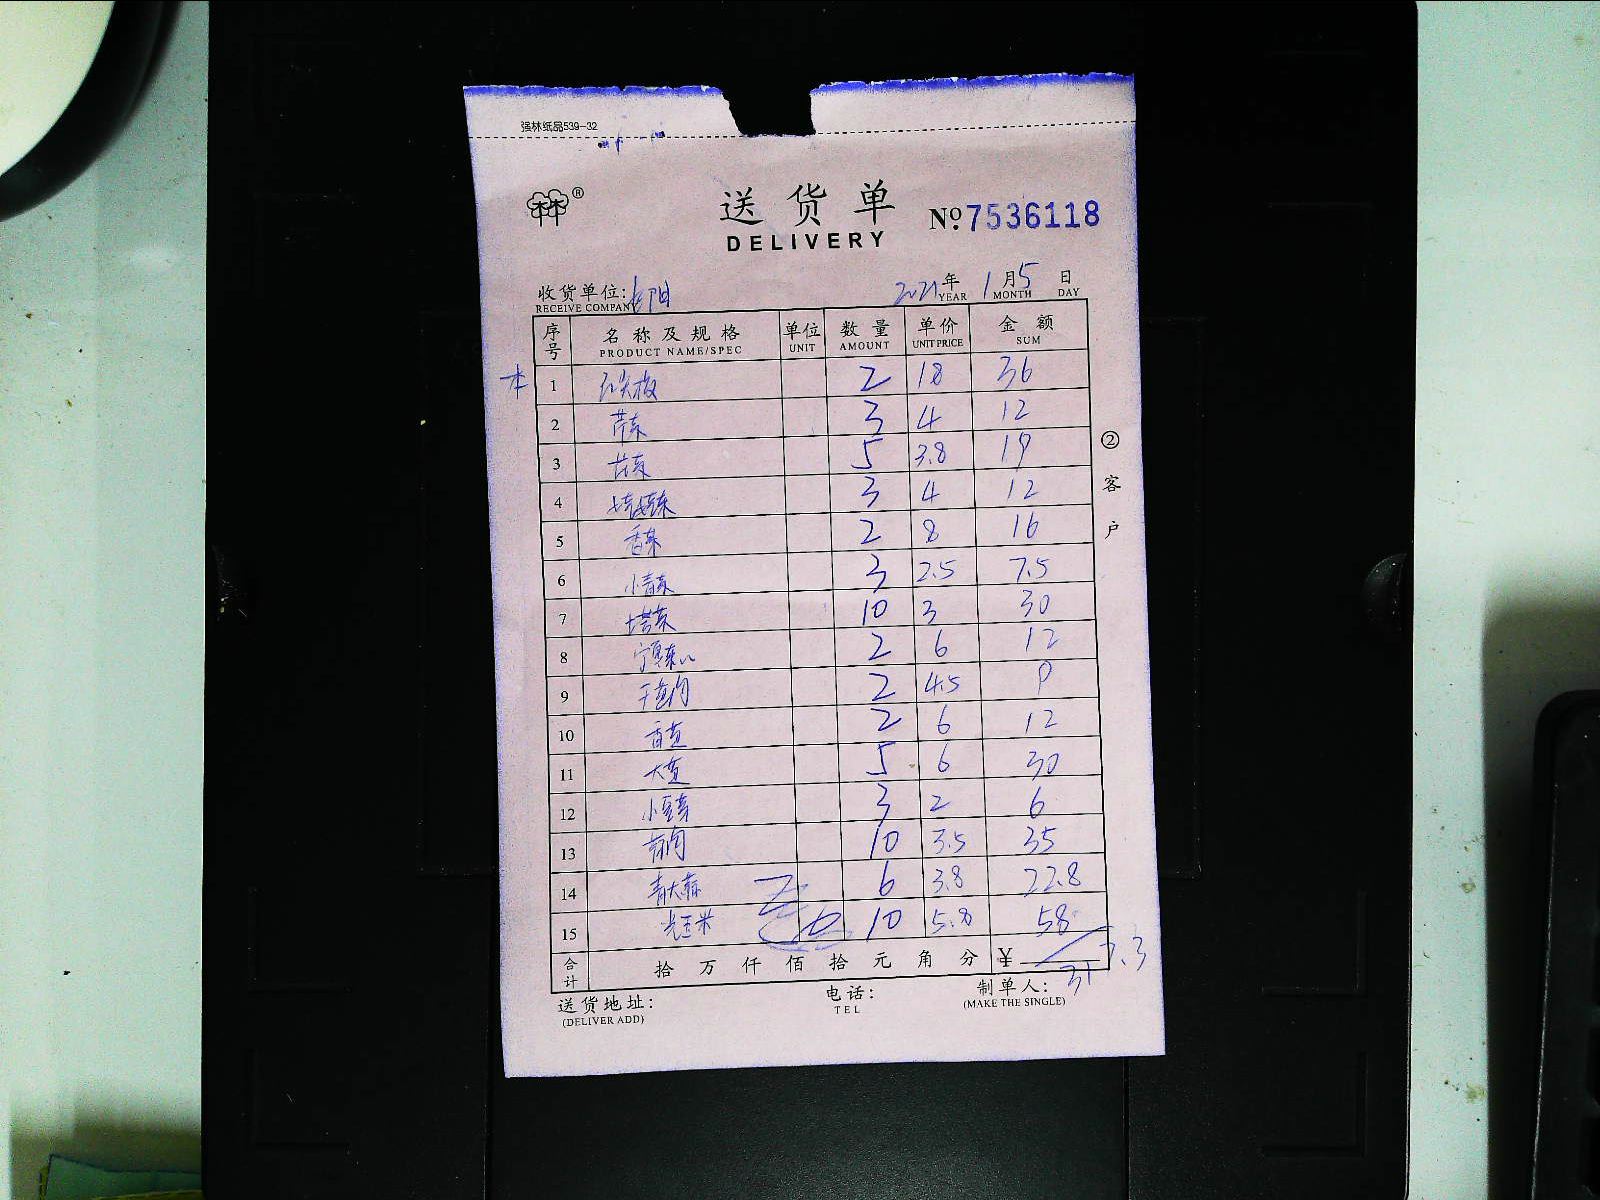 强林纸品539-32
林林®
送货单
DELIVERY
№7536118
收货单位: 2021年1月5日
RECEIVE COMPANY YEAR MONTH DAY
序号 名称及规格 单位 数量 单价 金额
PRODUCT NAME/SPEC UNIT AMOUNT UNIT PRICE SUM
1 2 18 36
2 芹菜 3 4 12
3 花菜 5 3.8 19
4 3 4 12
5 香菜 2 8 16
6 小青菜 3 2.5 7.5
7 塔菜 10 3 30
8 2 6 12
9 2 4.5 9
10 2 6 12
11 5 6 30
12 小豆芽 3 2 6
13 10 3.5 35
14 青大蒜 6 3.8 22.8
15 光玉米 10 5.8 58
合计 拾万仟佰拾元角分 ¥ 317.3
送货地址: 电话: 制单人:
(DELIVER ADD) TEL (MAKE THE SINGLE)
②客户